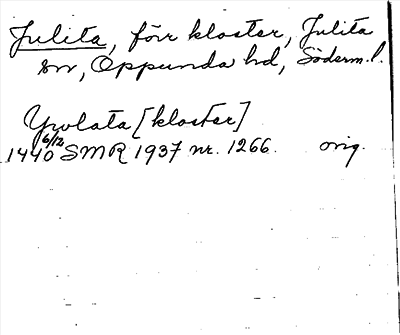 Julita, förr kloster, Julita
sn, Oppunda hd, Söderm.l.
Yvolata [kloster]
1440 6/12 SMR 1937 nr. 1266. orig.